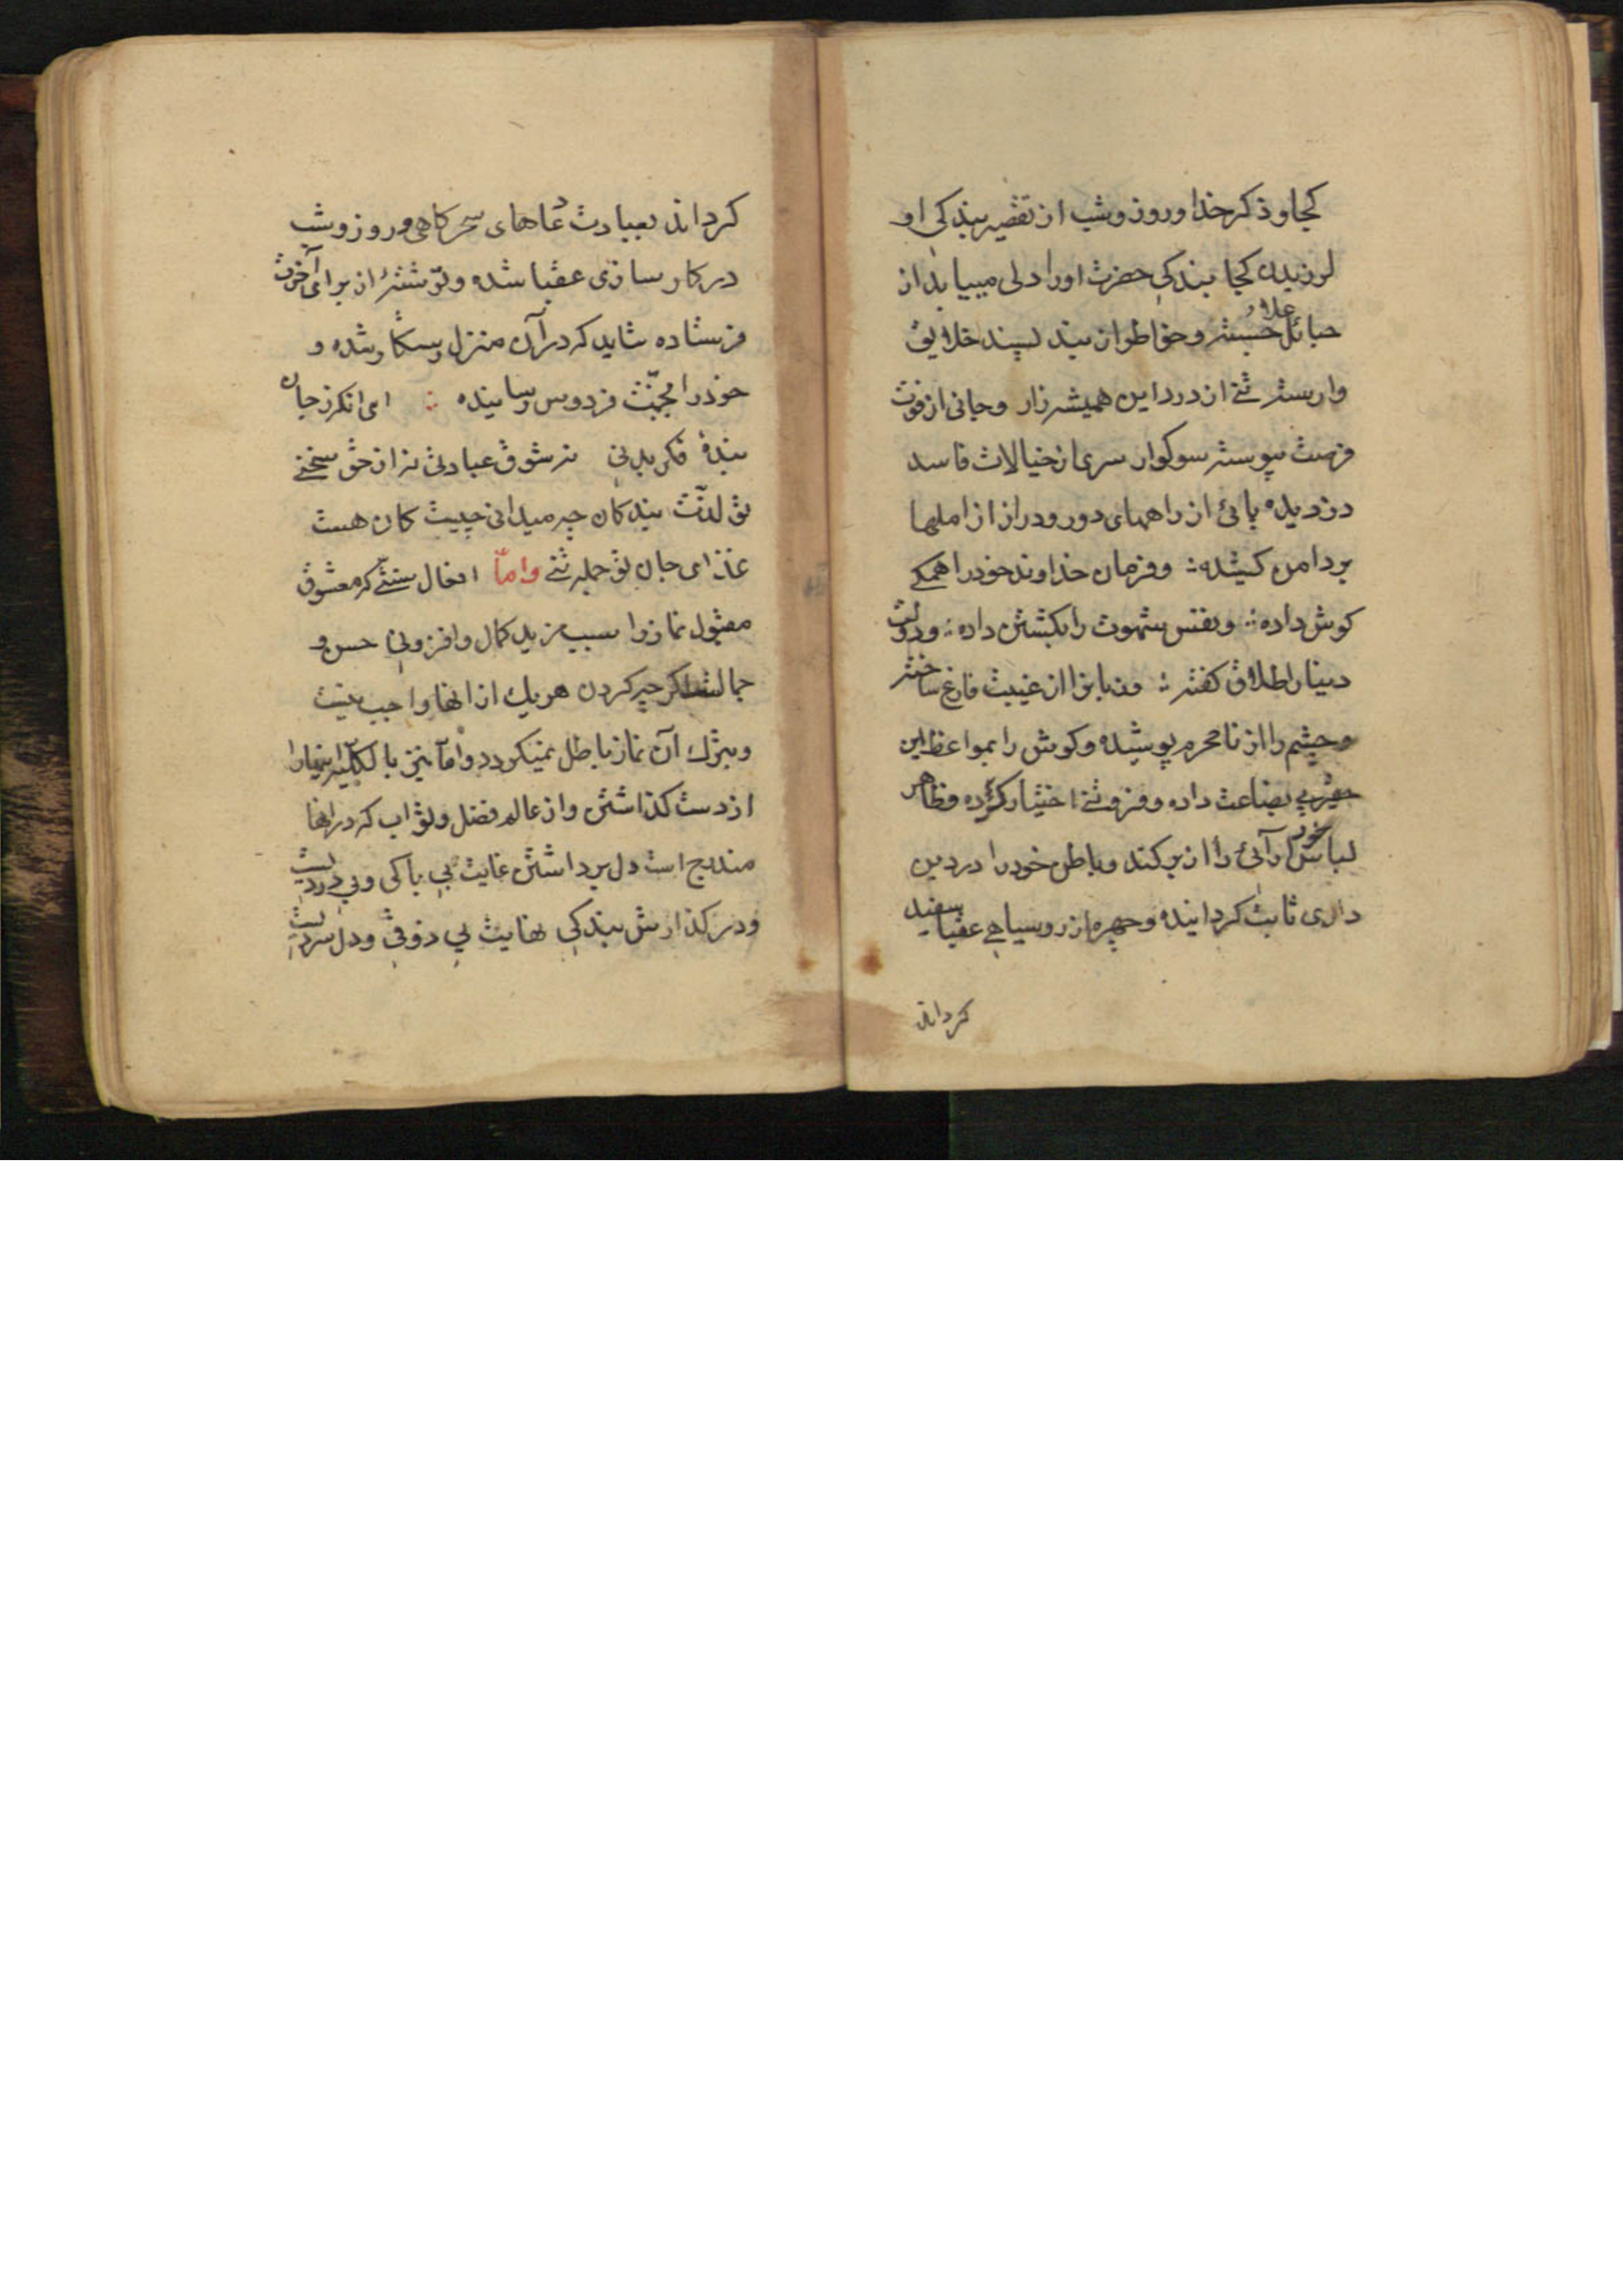 کجا و ذکر خدا و روز و شب از تقصیر بندکی او
لرزیدن کجا بندکی حضرت او را دلی میباید از
حبائل علائق جسته و خاطر از بند پسند خلایق
وارسته تنی از درد این همیشه زار و جانی از فوت
فرصت پیوسته سوکوار سری از خیالات فاسد
دزدیده پائی از راههای دور و دراز از املها
بر دامن کشیده ؛ و فرمان خداوند خود را همکی
کوش داده ؛ و نفس شهوت را بکشتن داده ؛ و دولت
دنیا را طلاق کفته ؛ و زبانرا از غیبت فارغ ساخته
و چشم را از نامحرم پوشیده و کوش را بمواعظ این
بی بضاعت داده و فروتنی اختیار کرده و ظاهر
لباس خود آرائی را از بر کنده و باطن خود را در دین
داری ثابت کردانیده و چهره از رو سیاهی عقبا سفید
کرداند
کرداند بعبادت دعاهای سحرکاهی و روز و شب
در کارسازی عقبا شده و توشهٔ از برای آخرت
فرستاده شاید که در آن منزل رستکار شده و
خود را بجنّت فردوس رسانیده ؛ ای انکه ز جان
بندهٔ فکر بدنی نه شوق عبادتی نه از حق سخنی
تو لذّت بندکان چه میدانی چیست کان هست
غذای جان تو جمله تنی وامّا افعال سنّتی که معشوق
مقبول نماز را سبب مزید کمال و افزونی حسن و
جمالست اکر چه کردن هر یک از انها واجب نیست
و بترک آن نماز باطل نمیکردد و امّا نیز بالکلّیه اینها را
از دست کذاشتن و از عالم فضل و ثواب که در انها
مندرج است دل برداشتن غایت بی باکی و بی دردیست
و در کذارش بندکی نهایت بی ذوقی و دل سردیست